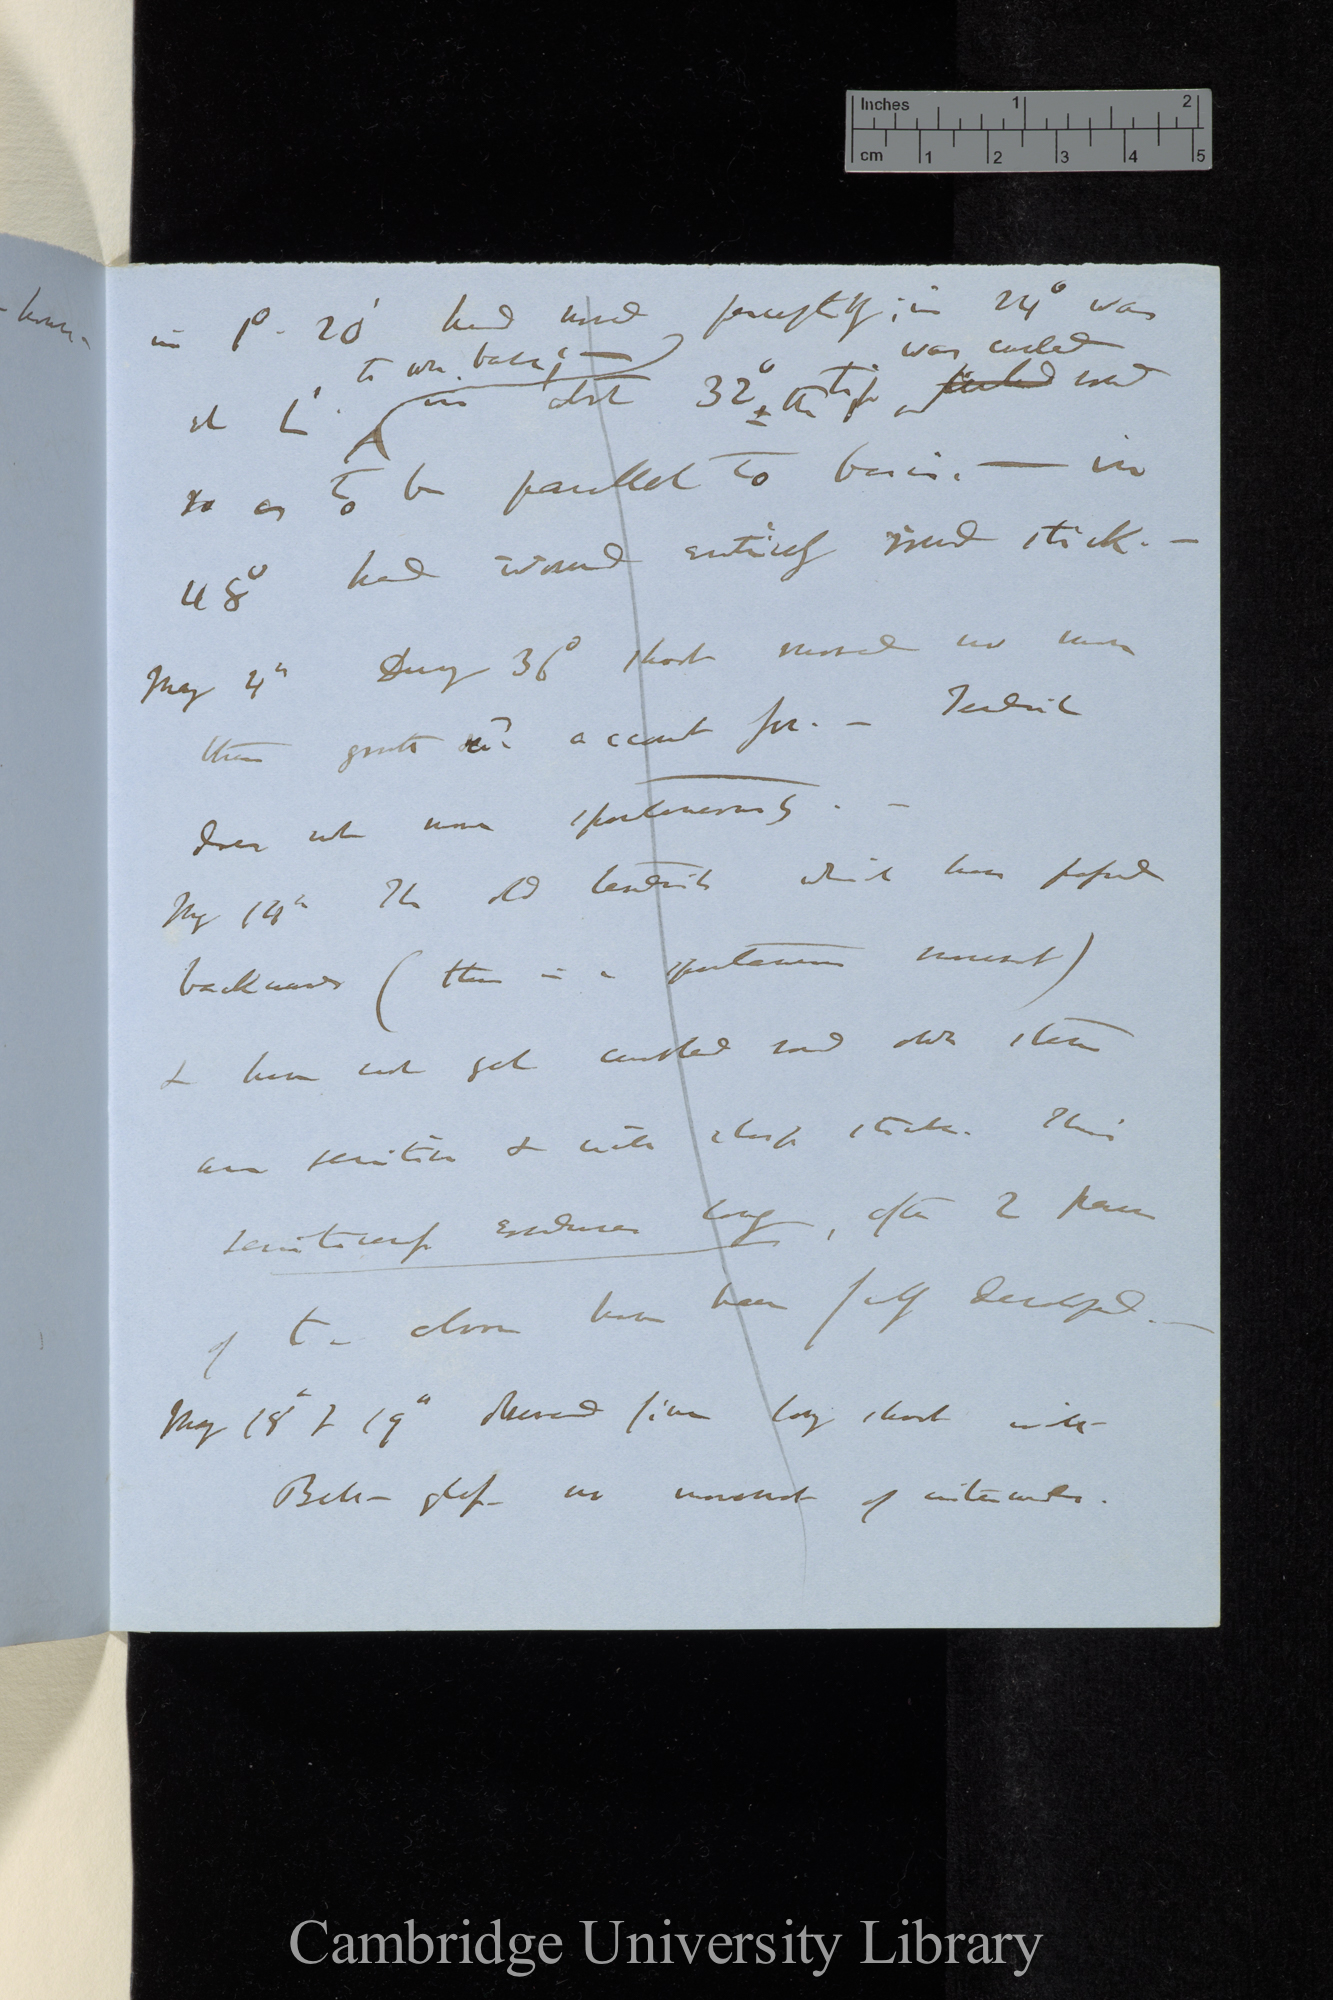 Inches 1 2
cm 1 2 3 4 5
in 1°. 20' had moved perceptibly; in 24° was
to its base; — was curled
at L'. in about 32° the tip round
so as to be parallel to basis. — in
48° had wound entirely round stick. —
May 4th During 36° shoot moved no more
than growth wd. account for. — Tendril
does not move spontaneously. —
May 14th The old tendrils which have passed
backwards (there is a spontaneous movement)
& have not got curled round own stem
are sensitive & with sharp stick. This
sensitiveness endures long, after 2 leaves
of the above have been fully developed. —
May 18th & 19th Observed fine long shoot with
Bell-glass no movement of internodes.
Cambridge University Library